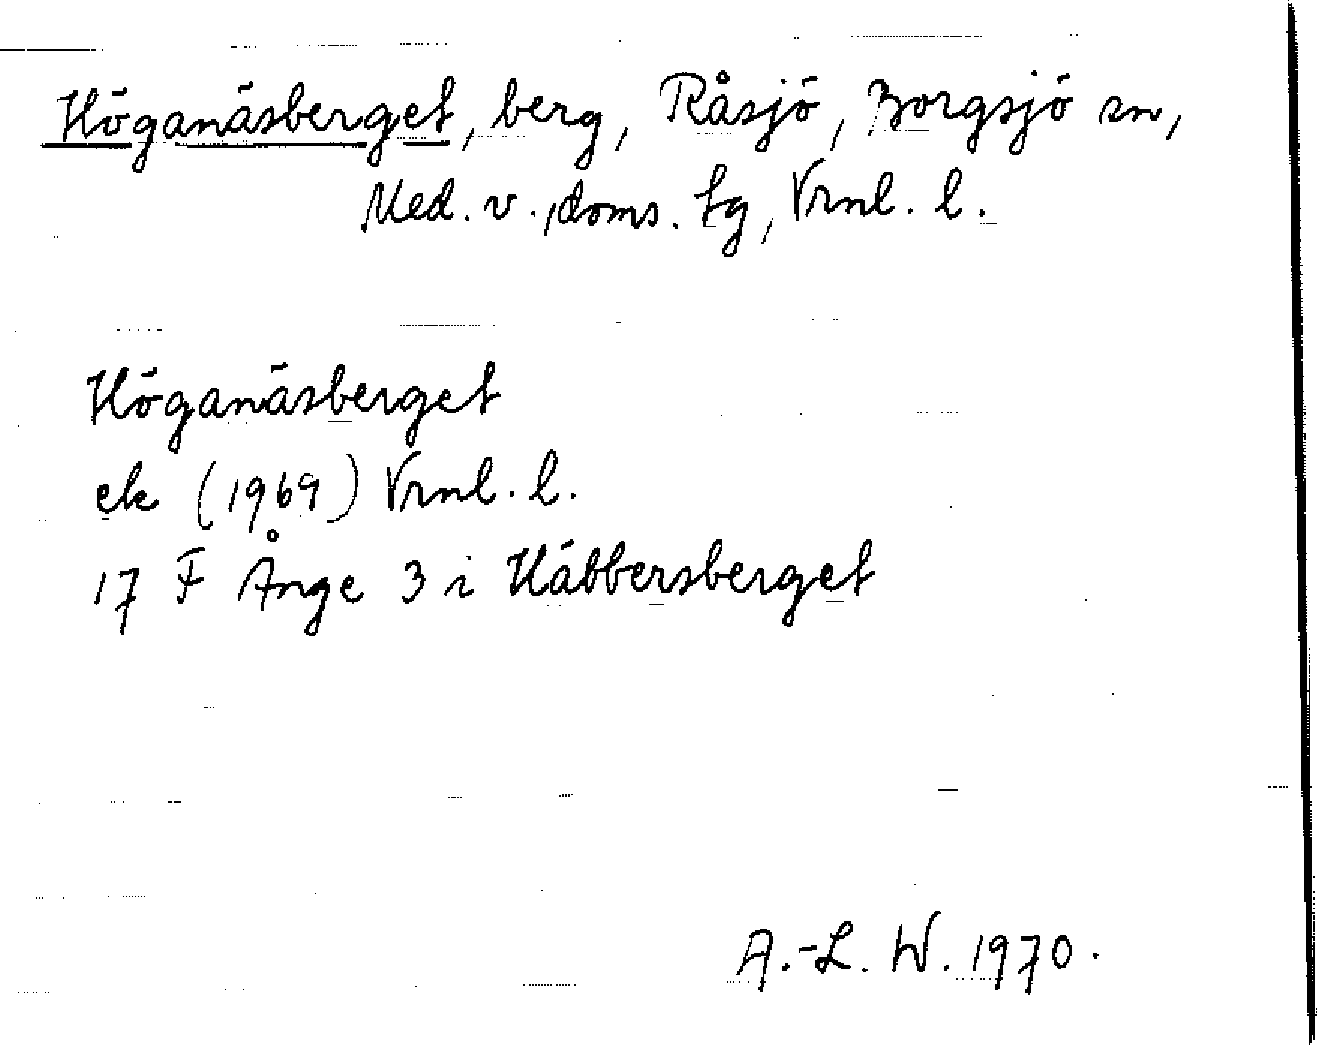 Höganäsberget, berg, Råsjö, Borgsjö sn,
Med. v., doms. tg, Vrnl. l.
Höganäsberget
ek (1969) Vrnl. l.
17 F Ånge 3 i Häbbersberget
A.-L. W. 1970.